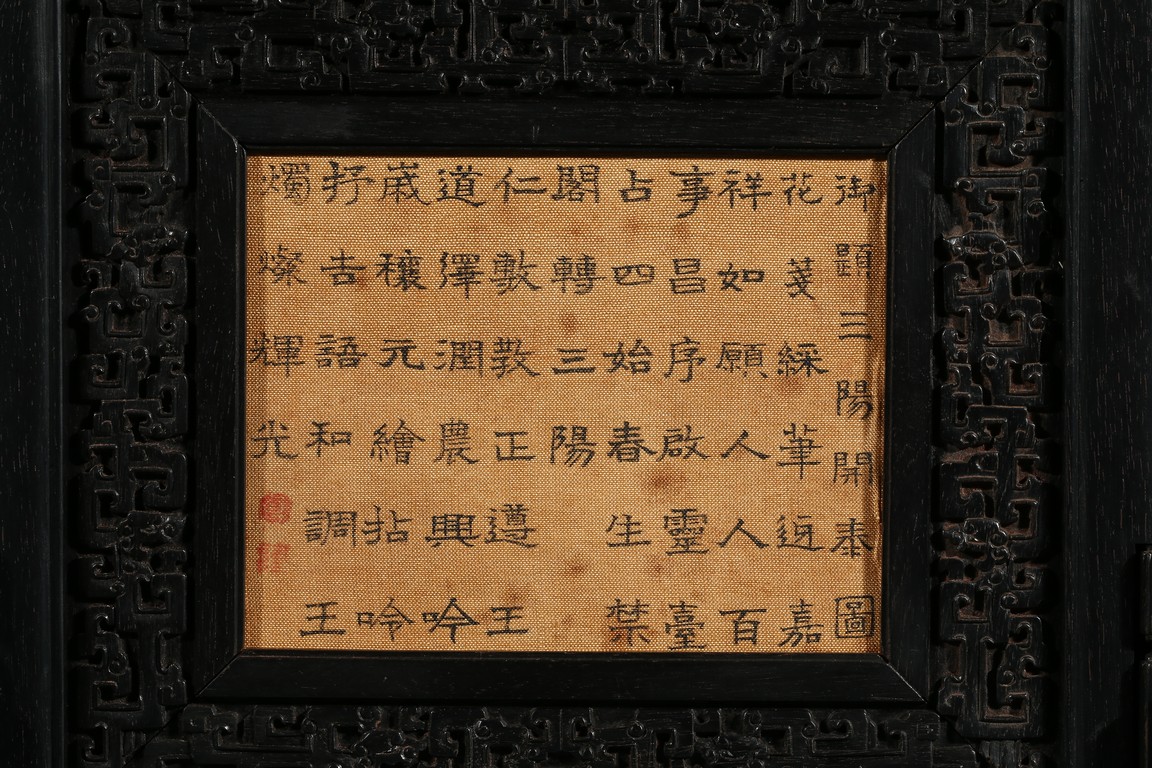 御題三陽開泰圖
花箋綵筆迓嘉
祥如願人人百
事昌序啟靈臺
占四始春生禁
閣轉三陽
仁敷教正遵王
道繹潤農興吟
歲穰元繪拈吟
抒吉語和調王
燭燦輝光